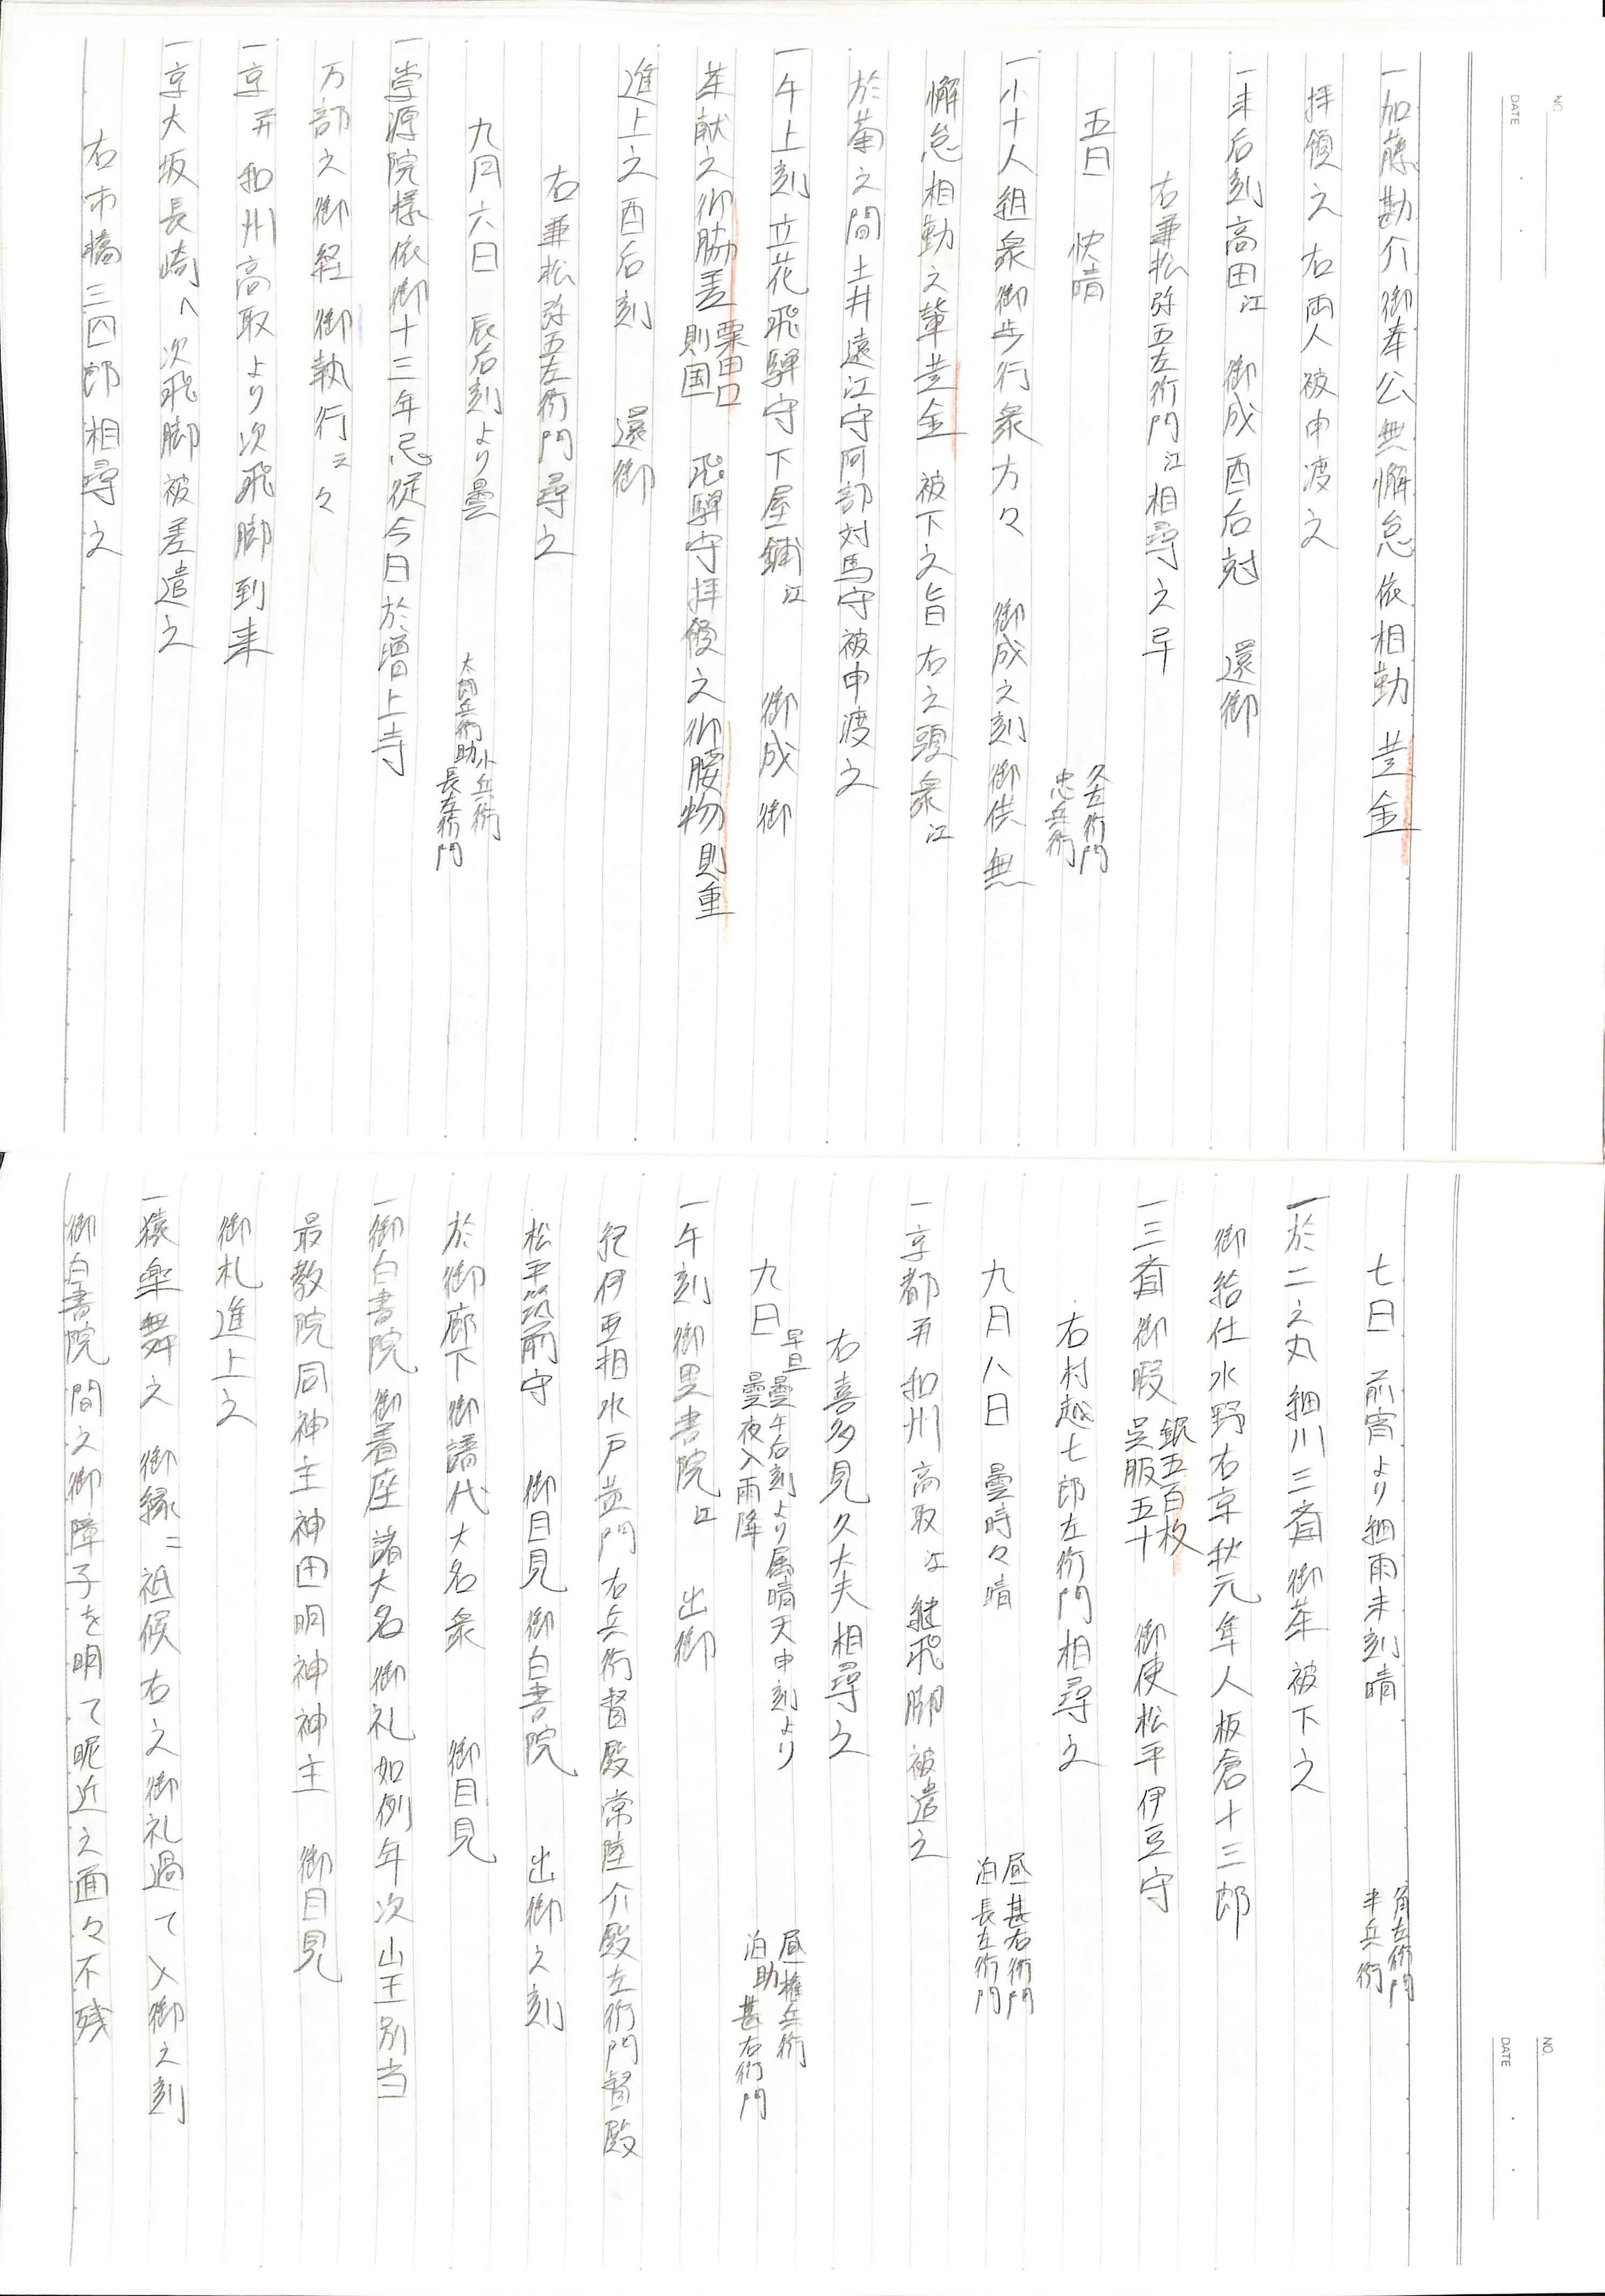 NO.
DATE
一加藤勘介御奉公無懈怠依相勤 黄金
拝領之 右両人被申渡之
一未后刻高田江 御成 酉后刻 還御
右兼松弥五左衛門江相尋之早
五日 快晴 久左衛門
忠兵衛
一小十人組衆御歩行衆方々 御成之刻御供無
懈怠相勤之輩黄金被下之旨右之頭衆江
於菊之間土井遠江守阿部対馬守被申渡之
一午上刻立花飛騨守下屋鋪江 御成 御
茶献之御脇差 粟田口
則国 飛騨守拝領之御腰物則重
進上之酉后刻 還御
右兼松弥五左衛門尋之
九月六日 辰后刻より曇 小兵衛
太郎兵衛助長左衛門
一崇源院様依御十三年忌従今日於増上寺
万部之御経御執行云々
一京并和州高取より次飛脚到来
一京大坂長崎へ次飛脚被差遣之
右市橋三四郎相尋之
NO.
DATE
七日 前宵より細雨未刻晴 角左衛門
半兵衛
一於二之丸細川三斎御茶被下之
御給仕水野右京秋元隼人板倉十三郎
一三斎御暇 銀五百枚
呉服五十 御使松平伊豆守
右村越七郎左衛門相尋之
九月八日 曇時々晴 昼甚右衛門
泊長左衛門
一京都并和州高取江継飛脚被遣之
右喜多見久大夫相尋之
九日 早旦曇午后刻より属晴天申刻より
曇夜入雨降 昼権兵衛
泊助甚右衛門
一午刻御黒書院江 出御
紀伊亜相水戸黄門右兵衛督殿常陸介殿左衛門督殿
松平筑前守 御目見御白書院 出御之刻
於御廊下御譜代大名衆 御目見
一御白書院御着座諸大名御礼如例年次山王別当
最教院同神主神田明神神主 御目見
御札進上之
一猿楽舞之御縁ニ祗候右之御礼過て入御之刻
御白書院間之御障子を明て昵近之面々不残